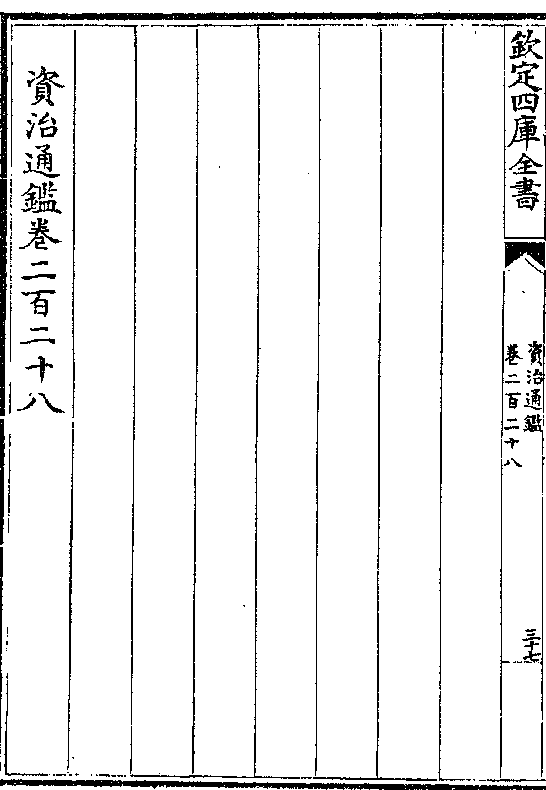 欽定四庫全書
資治通鑑
卷二百二十八
三十七
資治通鑑卷二百二十八